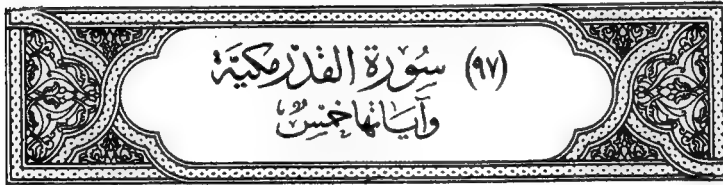 (٩٧) سُورَةُ القَدْرِ مَكيَّة
وَآيَاتُهَا خَمْسٌ